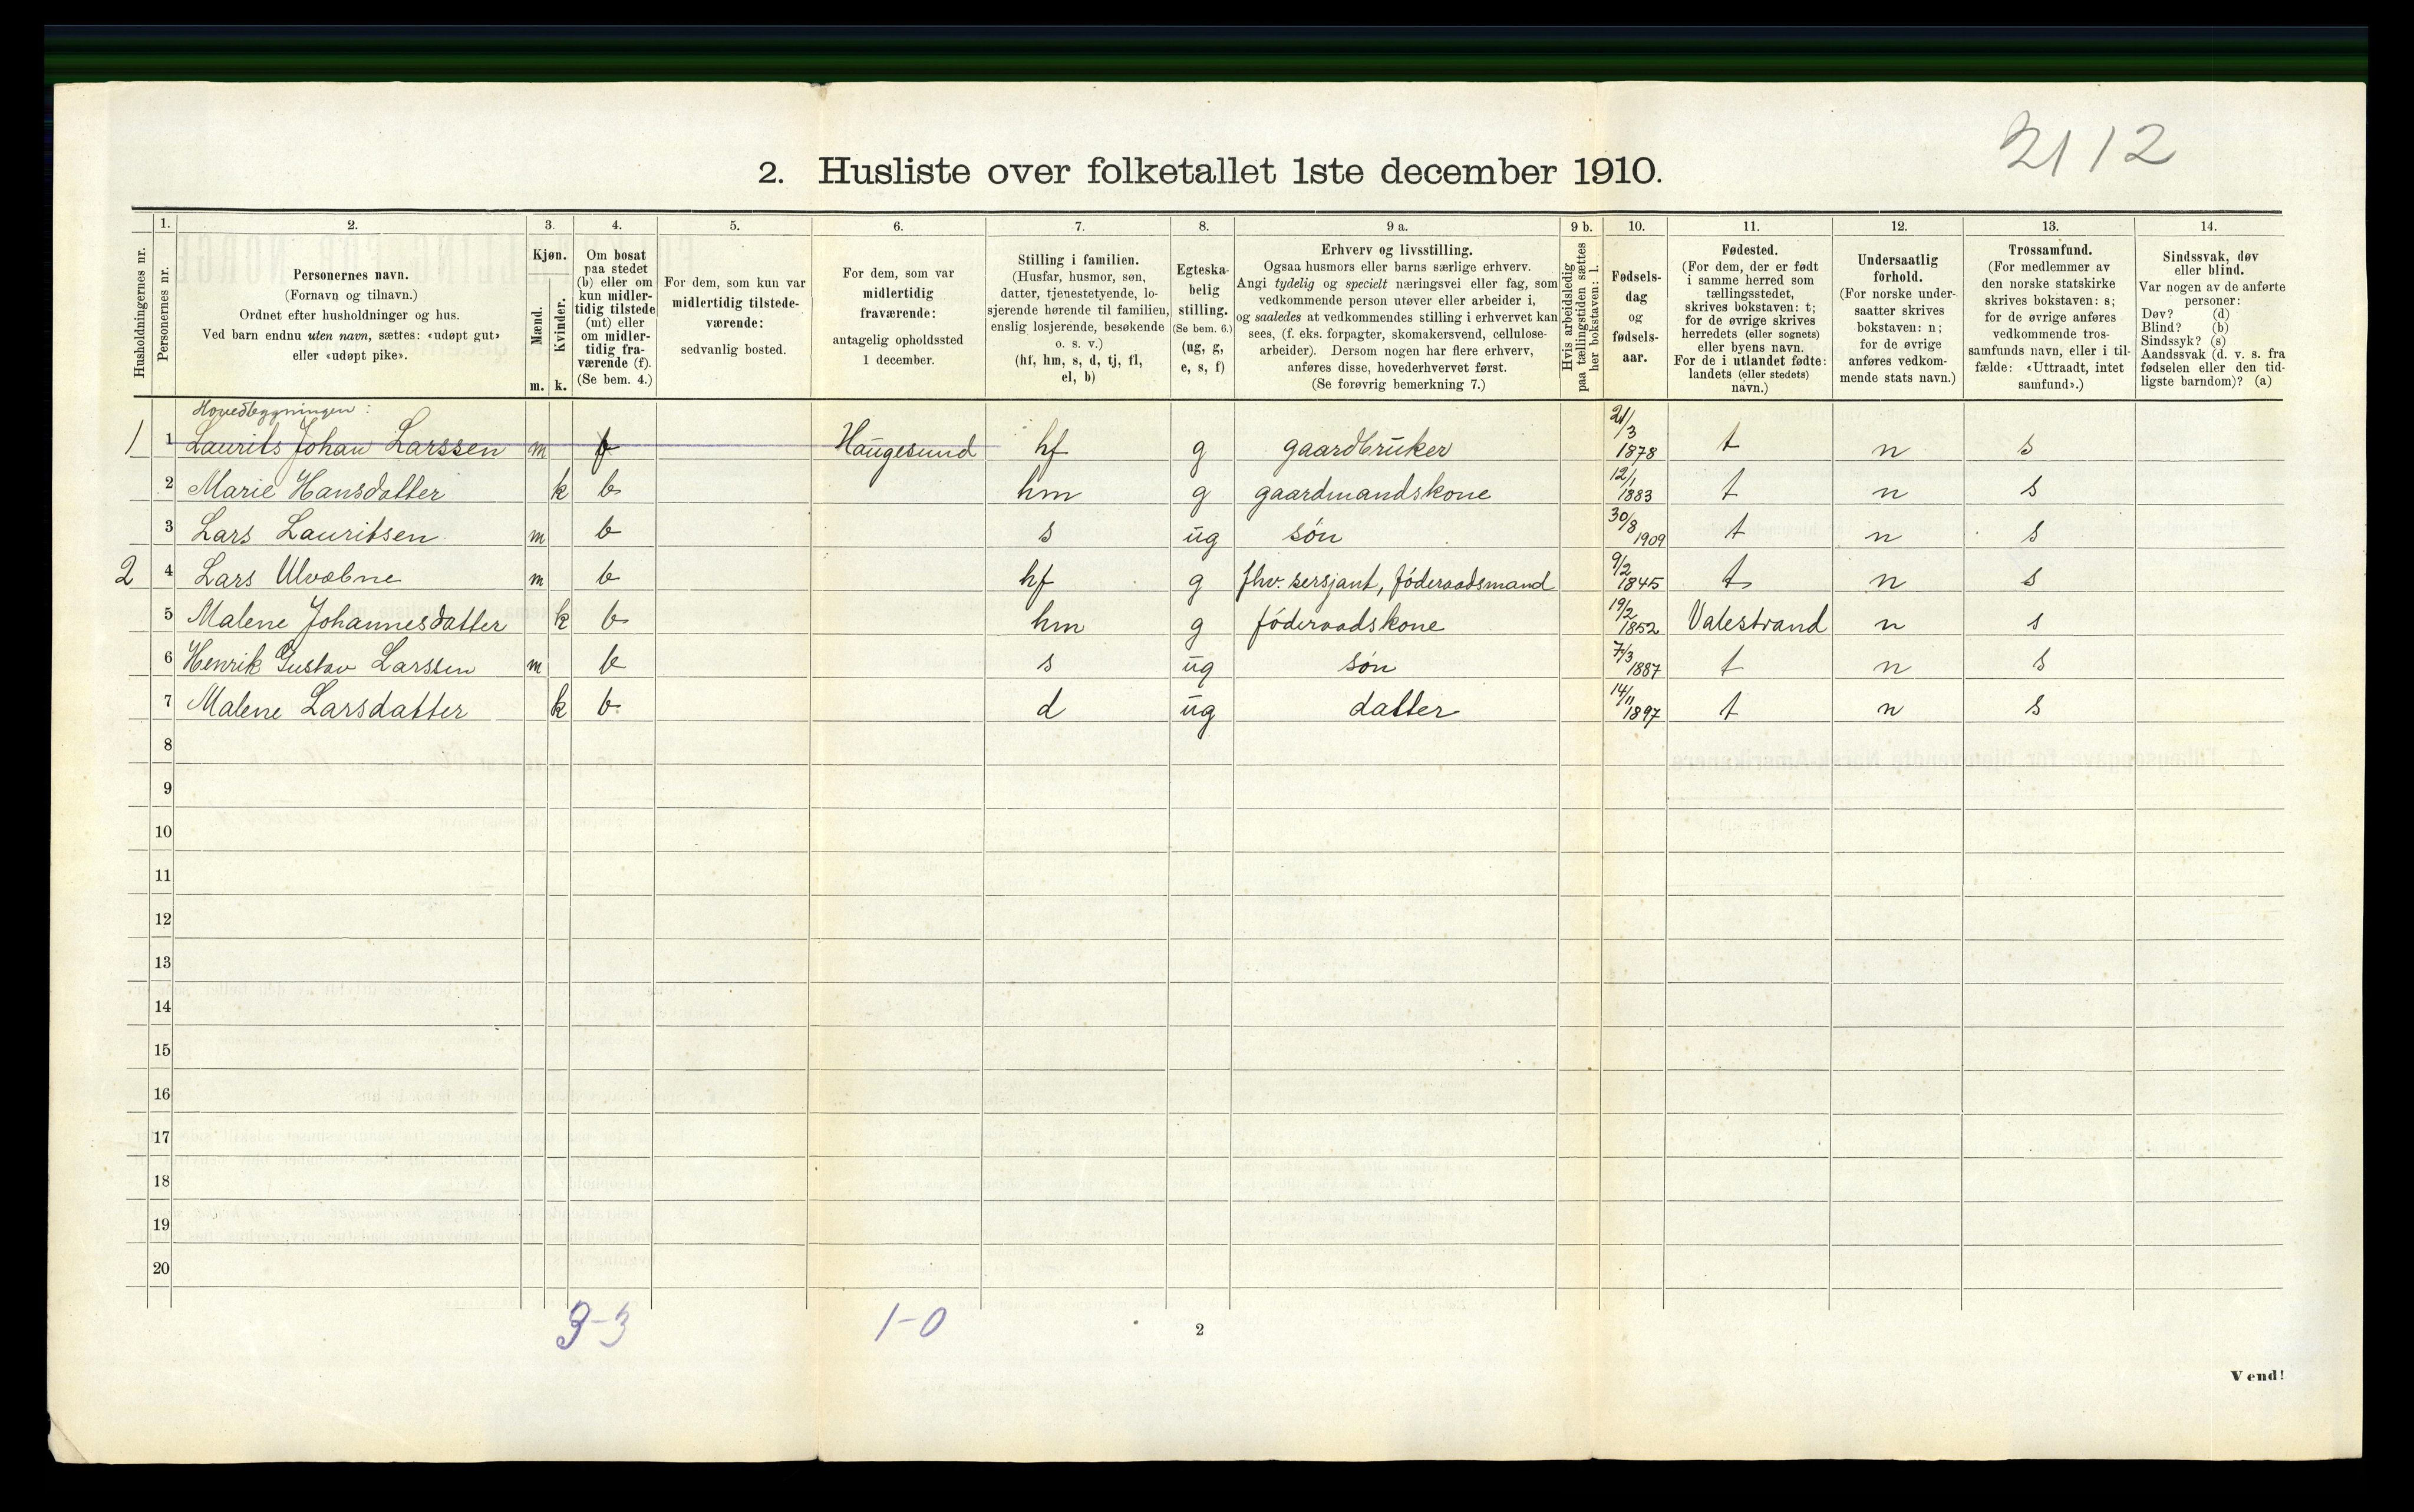 2112
2. Husliste over folketallet 1ste december 1910.
Husholdningernes nr.
1.
Personernes nr.
2.
Personernes navn.
(Fornavn og tilnavn.)
Ordnet efter husholdninger og hus.
Ved barn endnu uten navn, sættes: «udøpt gut»
eller «udøpt pike».
3.
Kjøn.
Mænd.
m.
Kvinder.
k.
4.
Om bosat
paa stedet
(b) eller om
kun midler-
tidig tilstede
(mt) eller
om midler-
tidig fra-
værende (f).
(Se bem. 4.)
5.
For dem, som kun var
midlertidig tilstede-
værende:
sedvanlig bosted.
6.
For dem, som var
midlertidig
fraværende:
antagelig opholdssted
1 december.
7.
Stilling i familien.
(Husfar, husmor, søn,
datter, tjenestetyende, lo-
sjerende hørende til familien,
enslig losjerende, besøkende
o. s. v.)
(hf, hm, s, d, tj, fl,
el, b)
8.
Egteska-
belig
stilling.
(Se bem. 6.)
(ug, g,
e, s, f)
9 a.
Erhverv og livsstilling.
Ogsaa husmors eller barns særlige erhverv.
Angi tydelig og specielt næringsvei eller fag, som
vedkommende person utøver eller arbeider i,
og saaledes at vedkommendes stilling i erhvervet kan
sees, (f. eks. forpagter, skomakersvend, cellulose-
arbeider). Dersom nogen har flere erhverv,
anføres disse, hovederhvervet først.
(Se forøvrig bemerkning 7.)
9 b.
Hvis arbeidsledig
paa tællingstiden sættes
her bokstaven: l.
10.
Fødsels-
dag
og
fødsels-
aar.
11.
Fødested.
(For dem, der er født
i samme herred som
tællingsstedet,
skrives bokstaven: t;
for de øvrige skrives
herredets (eller sognets)
eller byens navn.
For de i utlandet fødte:
landets (eller stedets)
navn.)
12.
Undersaatlig
forhold.
(For norske under-
saatter skrives
bokstaven: n;
for de øvrige
anføres vedkom-
mende stats navn.)
13.
Trossamfund.
(For medlemmer av
den norske statskirke
skrives bokstaven: s;
for de øvrige anføres
vedkommende tros-
samfunds navn, eller i til-
fælde: «Uttraadt, intet
samfund».)
14.
Sindssvak, døv
eller blind.
Var nogen av de anførte
personer:
Døv? (d)
Blind? (b)
Sindssyk? (s)
Aandssvak (d. v. s. fra
fødselen eller den tid-
ligste barndom)? (a)
Hovedbygningen:
1 1 Laurits Johan Larssen m f Haugesund hf g gaardbruker 21/3 1878 t n s
2 Marie Hansdatter k b hm g gaardmandskone 12/1 1883 t n s
3 Lars Lauritsen m b s ug søn 30/8 1909 t n s
2 4 Lars Ulvebne m b hf g fhv. sersjant, føderaadsmand 9/2 1845 t n s
5 Malene Johannesdatter k b hm g føderaadskone 19/2 1852 Valestrand n s
6 Henrik Gustav Larssen m b s ug søn 7/3 1887 t n s
7 Malene Larsdatter k b d ug datter 14/11 1897 t n s
8
9
10
11
12
13
14
15
16
17
18
19
20
3-3 1-0
2
Vend!